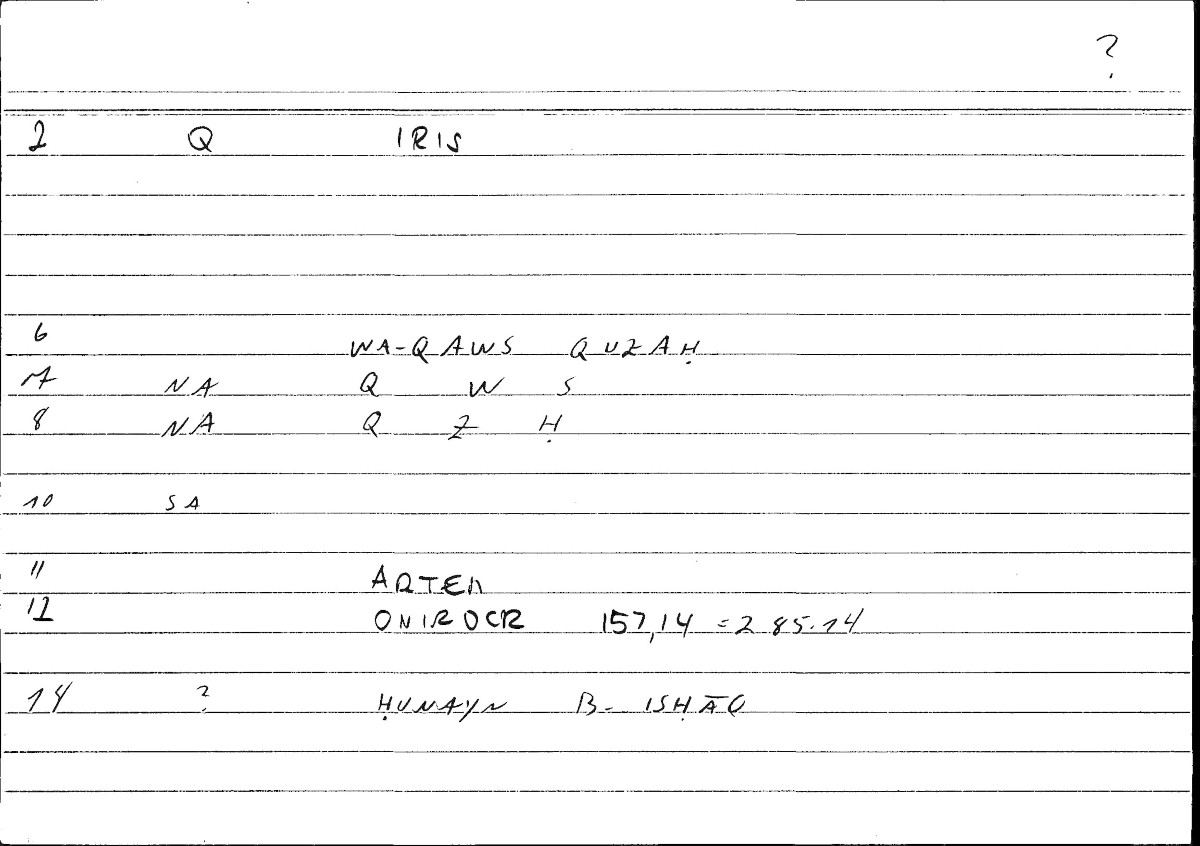 ?
2 Q IRIS
6 WA-QAWS QUZAḤ
7 NA Q W S
8 NA Q Z Ḥ
10 SA
11 ARTEM
12 ONIROCR 157,14 = 285.14
14 ? ḤUNAYN B- ISḤĀQ